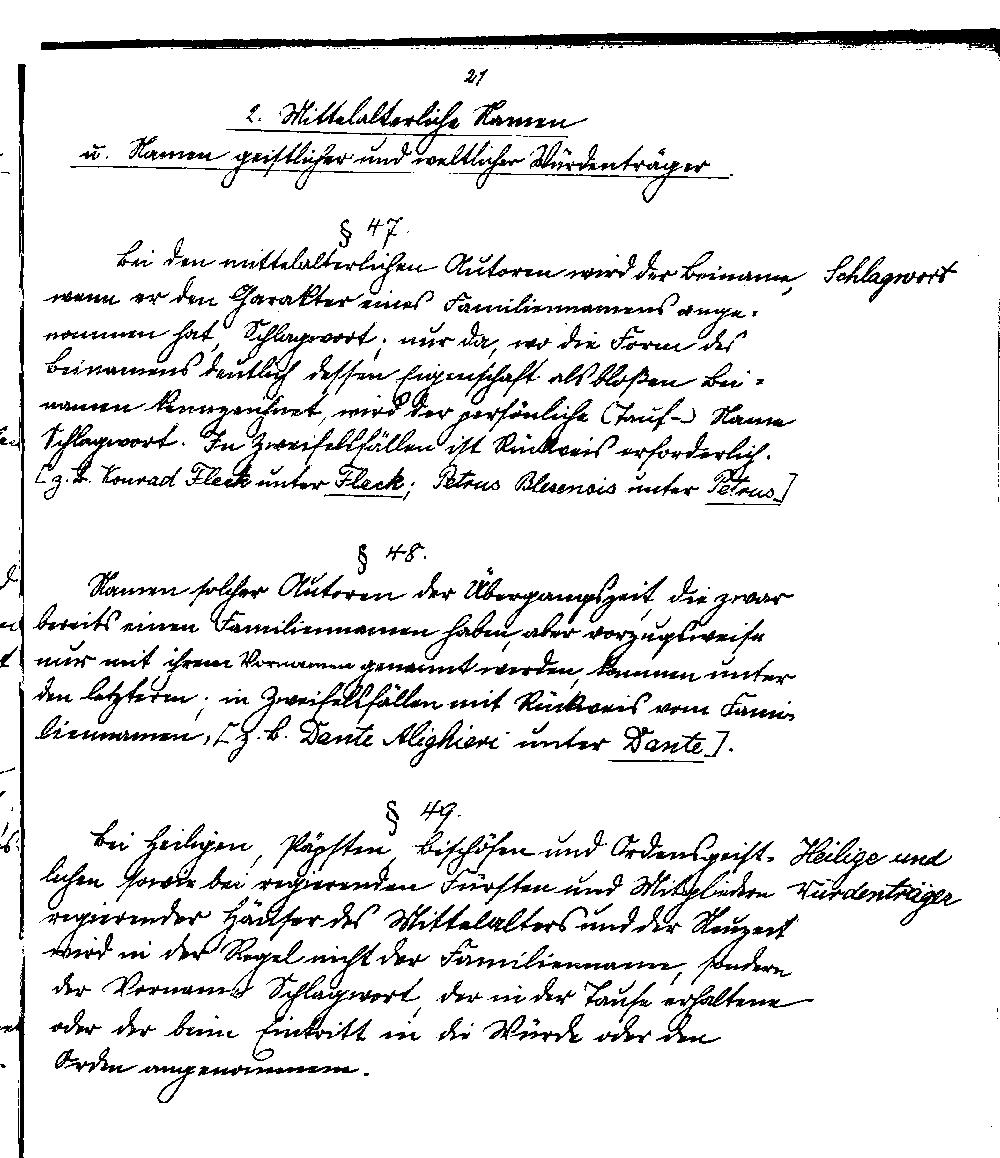 21
2. Mittelalterliche Namen
u. Namen geistlicher und weltlicher Würdenträger.
§ 47.
Bei den mittelalterlichen Autoren wird der Beiname, Schlagwort
wenn er den Charakter eines Familiennamens ange-
nommen hat, Schlagwort; nur da, wo die Form des
Beinamens deutlich dessen Eigenschaft als bloßen Bei-
namen kennzeichnet, wird der persönliche (Tauf-) Name
Schlagwort. In Zweifelsfällen ist Rückweis erforderlich.
[z. B. Konrad Fleck unter Fleck; Petrus Blesensis unter Petrus.]
§ 48.
Namen solcher Autoren der Übergangszeit, die zwar
bereits einen Familiennamen haben, aber vorzugsweise
nur mit ihrem Vornamen genannt werden, kommen unter
den letzterm; in Zweifelsfällen mit Rückweis vom Fami-
liennamen, [z. B. Dante Alighieri unter Dante].
§ 49.
Bei Heiligen, Päpsten, Bischöfen und Ordensgeist- Heilige und
lichen sowie bei regierenden Fürsten und Mitgliedern Würdenträger
regierender Häuser des Mittelalters und der Neuzeit
wird in der Regel nicht der Familienname, sondern
der Vorname Schlagwort, der in der Taufe erhaltene
oder der beim Eintritt in die Würde oder den
Orden angenommene.